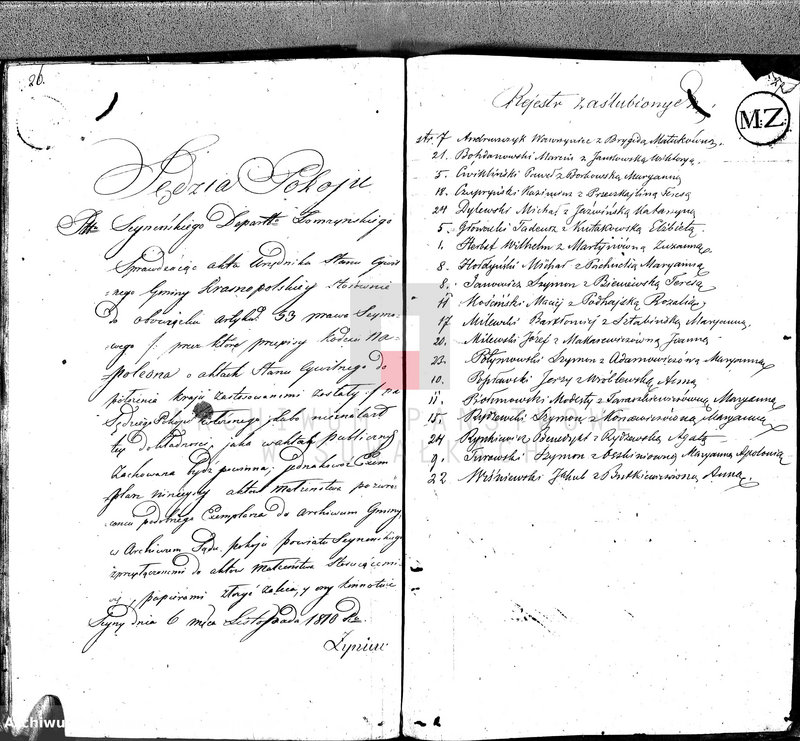 26.
Sędzia Pokoju
Pttu Seyneńskiego Departtu Łomżynskiego
Sprawdzaiąc akta Urzędnika Stanu Cywil-
nego Gminy Krasnopolskiey stosownie
do obowiązku artykuł 53 prawa Seymo-
wego / przez który przepisy Kodexu Na-
poleona o aktach Stanu Cywilnego do
położenia kraju zastosowanemi zostały / na
Sędziego Pokoju włożonego lubo nieznalazł
tey dokładności, jaka w aktach publicznych
zachowana bydz powinna; jednakowoż Exem
plarz ninieyszy aktów małżeństwa
podobnego Exemplarza do Archiwum Gminy
w Archiwum Sądu pokoju Powiatu Seyneńskiego
z przyłączonemi do aktów małżeństwa stosuiącemi
się papierami złożyć zaleca, y
Seyny dnia 6 mca Listopada 1810 Ru.
Żyniew
Rejestr zaślubionych
MZ
str. 7 Andruszczyk Wawrzyniec z Brygidą Matukówną
21. Bohdanowski Marcin z Jankowską Wiktoryą
5. Cwikliński Paweł z Borkowską Maryanną
18. Czupryński Kazimierz z Przeszkajlina Teresą
24 Dylewski Michał z Jaźwińską Katarzyną
5. Głowacki Tadeusz z Kutakowską Elżbietą
1. Herbet Wilhelm z Martyjówną Zuzanną
8. Hołdyński Michał z Pachucką Maryanną
8. Janowicz Szymon z Bieniewską Teresą
11 Kosciński Maciej z Podhajską Rozalią
17 Milewski Bartłomiej z Sztabińską Maryanną
20. Milewski Józef z Makarewiczówną Joanną
23. Połynowski Szymon z Adamowiczówną Maryanną
10. Popławski Jerzy z Wróblewską Anną
11. Modesty z Taraszkiewiczówną Maryanną
15. Rydzewski Szymon z Maryanną
24 Rynkiewicz Benedykt z Rydzewską Agatą
9. Turowski Szymon z Maryanną Apolonią
22 Wiśniewski Jakub z Butkiewiczówną Anną
ARCHIWUM PAŃSTWOWE
W SUWAŁKACH
Archiwu